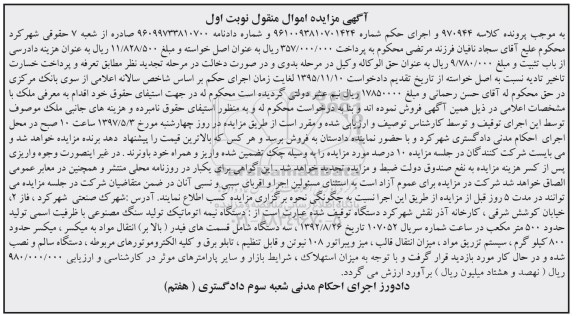 آگهی مزایده اموال منقول نوبت اول
به موجب پرونده کلاسه ۹۷۰۹۴۴ و اجرای حکم شماره ۹۶۱۰۰۹۳۸۱۰۷۰۱۴۲۴ و شماره دادنامه ۹۶۰۹۹۷۳۳۸۱۰۷۰۰ صادره از شعبه ۷ حقوقی شهرکرد
محکوم علیه آقای سجاد نافیان فرزند مرتضی محکوم به پرداخت ۳۵۷/۰۰۰/۰۰۰ ریال به عنوان اصل خواسته و مبلغ ۱۱/۸۲۸/۵۰۰ ریال به عنوان هزینه دادرسی
از باب تثبیت و مبلغ ۹/۷۸۰/۰۰۰ ریال به عنوان حق الوکاله وکیل در مرحله بدوی و در صورت دخالت در مرحله تجدید نظر مطابق تعرفه و پرداخت خسارت
تاخیر تادیه نسبت به اصل خواسته از تاریخ تقدیم دادخواست ۱۳۹۵/۱۱/۱۰ لغایت زمان اجرای حکم بر اساس شاخص سالانه اعلامی از سوی بانک مرکزی
در حق محکوم له آقای حسن رحمانی و مبلغ ۱۷۸۵۰۰۰۰ ریال نیم عشر دولتی گردیده است محکوم له در جهت استیفای حقوق خود اقدام به معرفی ملک با
مشخصات اعلامی در ذیل همین آگهی فروش نموده اند و بنا به درخواست محکوم له و به منظور استیفای حقوق نامبرده و هزینه های جانبی ملک موصوف
توسط این اجرای توقیف و توسط کارشناس توصیف و ارزیابی شده و مقرر است از طریق مزایده در روز چهارشنبه مورخ ۱۳۹۷/۵/۳ ساعت ۱۰ صبح در محل
اجرای احکام مدنی دادگستری شهرکرد و با حضور نماینده دادستان به فروش برسد و هر کس که بالاترین قیمت را پیشنهاد دهد برنده مزایده خواهد شد و
می بایست شرکت کنندگان در جلسه مزایده ۱۰ درصد مورد مزایده را به وسیله چک تضمین شده واریز و همراه خود باوترند . در غیر اینصورت وجوه واریزی
پس از کسر هزینه مزایده به نفع صندوق دولت ضبط و مزایده تجدید خواهد شد . این گواهی برای یکبار در روزنامه محلی منتشر و همچنین در معابر عمومی
الصاق خواهد شد شرکت در مزایده برای عموم آزاد است به استثنای مسئولین اجرا و اقربای سببی و نسبی آنان در ضمن متقاضیان شرکت در جلسه مزایده می
توانند در مدت ۵ روز قبل از مزایده از طریق این اجرا نسبت به چگونگی نحوه برگزاری مزایده کسب اطلاع نمایند. آدرس :شهرک صنعتی شهرکرد ، فاز ۲،
خیابان کوشش شرقی ، کارخانه آذر نقش شهرکرد دستگاه توقیف شده عبارت است از : دستگاه نیمه اتوماتیک تولید سنگ مصنوعی با ظرفیت اسمی تولید
حدود ۵۰۰ متر مکعب در ساعت شماره سریال ۱۰۷۰۵۲ تاریخ ۱۳۹۲/۸/۲۶ ، سه دستگاه شامل قسمت های فیدر ( بالا بر) انتقال مواد به میکسر ، میکسر حدود
۸۰۰ کیلو گرم ، سیستم تزریق مواد ، میزان انتقال قالب ، میز ویبراتور ۱۰۸ نیوتن و قابل تنظیم ، تابلو برق و کلیه الکتروموتورهای مربوطه ، دستگاه سالم و نصب
شده و در حال کار مورد بازدید قرار گرفت و با توجه به میزان استهلاک ، شرایط بازار و سایر پارامترهای موثر در کارشناسی و ارزیابی ۹۸۰/۰۰۰/۰۰۰
ریال ( نهصد و هشتاد میلیون ریال ) برآورد ارزش می گردد.
دادورز اجرای احکام مدنی شعبه سوم دادگستری ( هفتم )